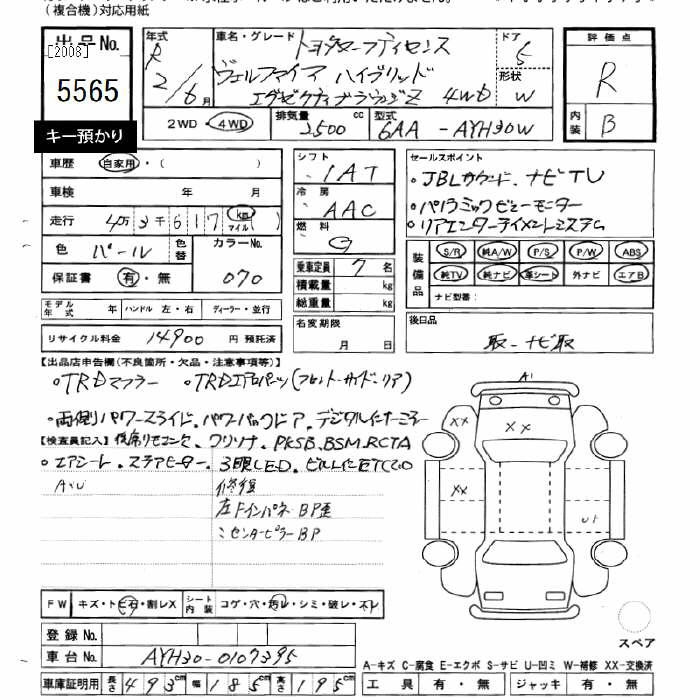 (複合機)対応用紙
出品No.
[2008]
5565
キー預かり
年式
R
2/6月
車名・グレード
トヨタモデリスタセンス
ヴェルファイア ハイブリッド
エグゼクティブラウンジZ 4WD
ドア
5
形状
W
評価点
R
内装
B
2WD・4WD
排気量
2500cc
型式
6AA-AYH30W
車歴
自家用・( )
車検 年 月
走行 4万3千617 km マイル ( )
色 パール
色替
カラーNo.
070
保証書 有・無
モデル年式 年 ハンドル 左・右 ディーラー・並行
リサイクル料金 14900 円 預託済
シフト
1AT
冷房
AAC
燃料
G
乗車定員 7 名
積載量 kg
総重量 kg
名変期限
月 日
セールスポイント
・JBLサウンド.ナビTV
・パノラミックビューモニター
・リアエンターテイメントシステム
装備品
S/R 純A/W P/S P/W ABS
純TV 純ナビ 革シート 外ナビ エアB
ナビ型番:
後日品
取-ナビ取
【出品店申告欄(不良箇所・欠品・注意事項等)】
・TRDマフラー ・TRDエアロパーツ(フロント・サイド・リア)
・両側パワースライド.パワーバックドア.デジタルインナーミラー
【検査員記入】後席リモコン欠.クリソナ.PKSB.BSM.RCTA
・エアシート.ステアヒーター.3眼LED.ビルトインETC2.0
AU
修復
左Fインパネ BP歪
〃センターピラーBP
A1
XX
XX
XX
U1
スペア
FW キズ・トビ石・割レX
シート内装 コゲ・穴・汚レ・シミ・破レ・スレ
登録No.
車台No. AYH30-0107395
車庫証明用 長さ 493cm 幅 185cm 高さ 195cm
A-キズ C-腐食 E-エクボ S-サビ U-凹ミ W-補修 XX-交換済
工具 有・無 ジャッキ 有・無